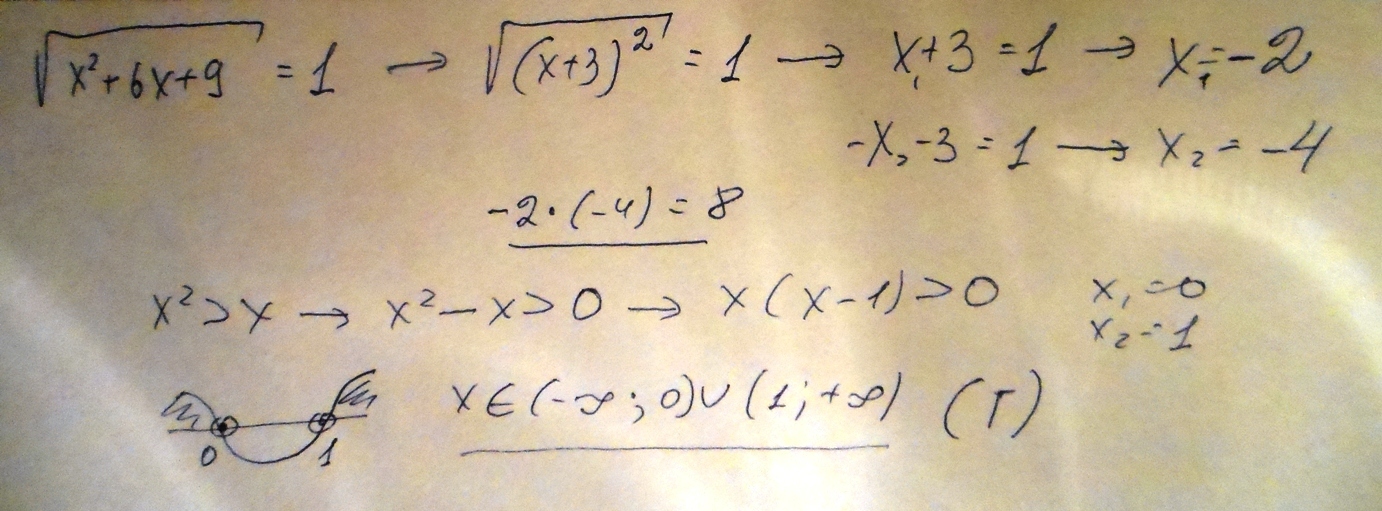 √(x²+6x+9) = 1 → √((x+3)²) = 1 → x₁+3 = 1 → x₁ = -2
-x₂-3 = 1 → x₂ = -4
-2·(-4) = 8
x² > x → x² - x > 0 → x(x-1) > 0 x₁ = 0
x₂ = 1
x ∈ (-∞; 0) ∪ (1; +∞) (Г)
0 1